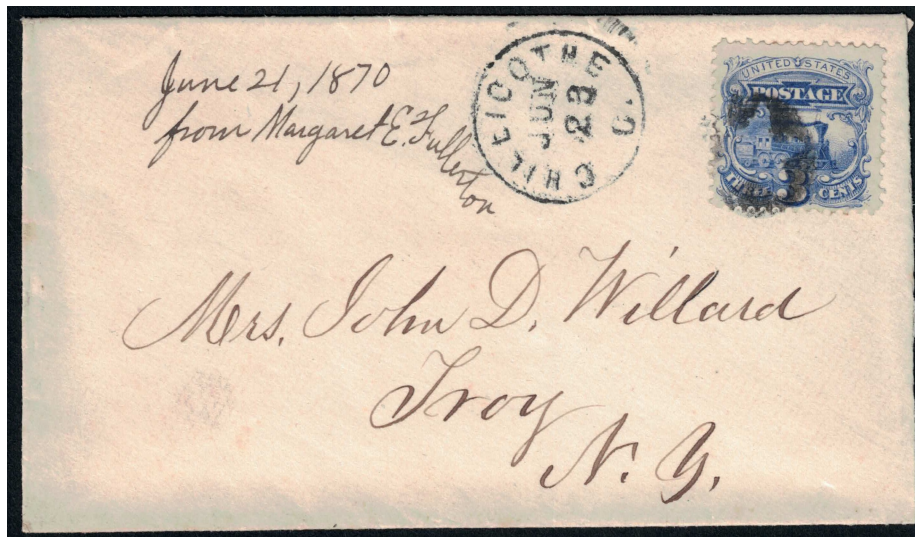 June 21, 1870
from Margaret E. Fullerton
CHILLICOTHE O.
JUN
23
UNITED STATES
POSTAGE
3 CENTS
Mrs. John D. Willard
Troy
N. Y.